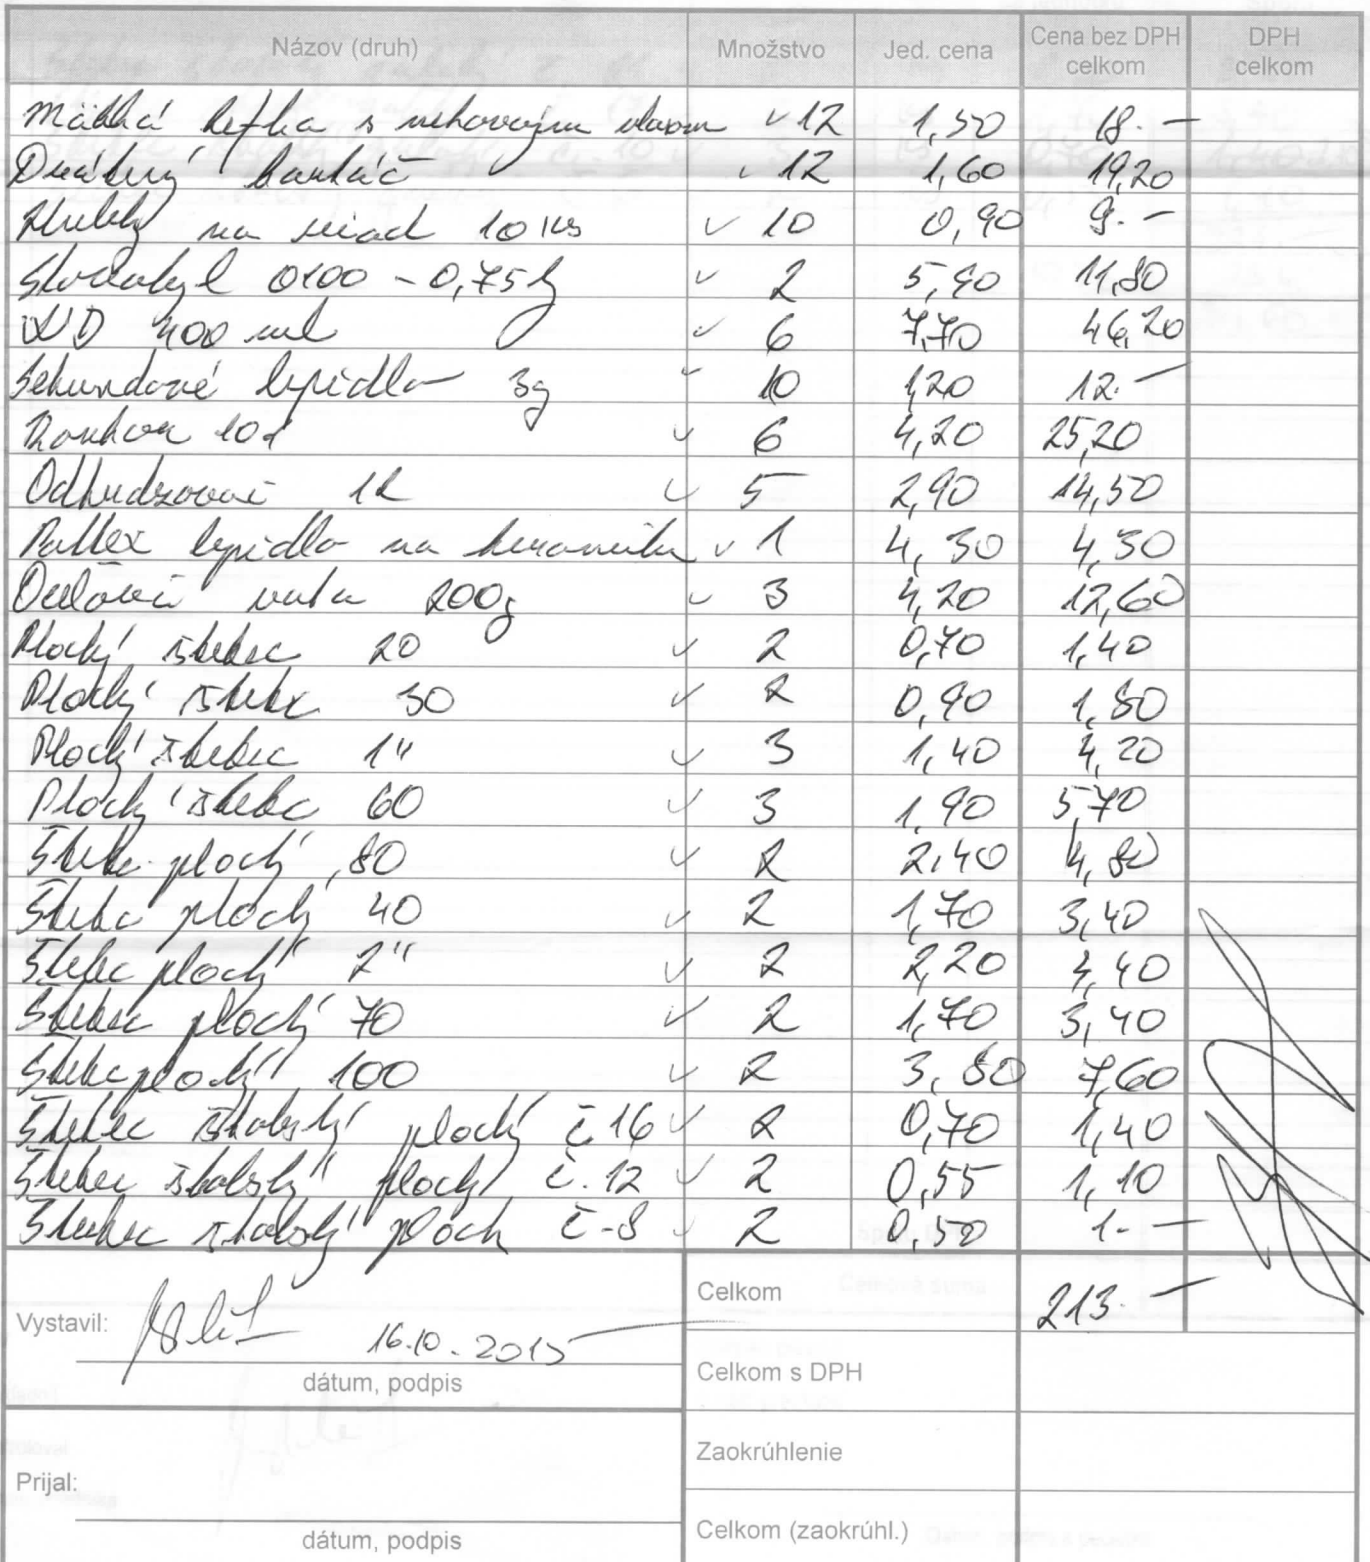 Názov (druh) Množstvo Jed. cena Cena bez DPH celkom DPH celkom
Mäkká kefka s nehovoým vlasom 12 1,50 18.-
Drátený kartáč 12 1,60 19,20
na riad 10 ks 10 0,90 9.-
0100 - 0,75 2 5,90 11,80
WD 400 ml 6 7,70 46,20
Sekundové lepidlo 3g 10 1,20 12.-
6 4,20 25,20
Odhrdzovač 1l 5 2,90 14,50
Pattex lepidlo na keramiku 1 4,30 4,30
vata 200g 3 4,20 12,60
Plochý štetec 20 2 0,70 1,40
Plochý štetec 30 2 0,90 1,80
Plochý štetec 1" 3 1,40 4,20
Plochý štetec 60 3 1,90 5,70
Štetec plochý 80 2 2,40 4,80
Štetec plochý 40 2 1,70 3,40
Štetec plochý 2" 2 2,20 4,40
Štetec plochý 70 2 1,70 3,40
Štetec plochý 100 2 3,80 7,60
Štetec školský plochý č. 16 2 0,70 1,40
Štetec školský plochý č. 12 2 0,55 1,10
Štetec školský ploch č-8 2 0,50 1.-
Celkom 213.-
Vystavil: 16.10.2015
dátum, podpis
Celkom s DPH
Zaokrúhlenie
Prijal:
Celkom (zaokrúhl.)
dátum, podpis